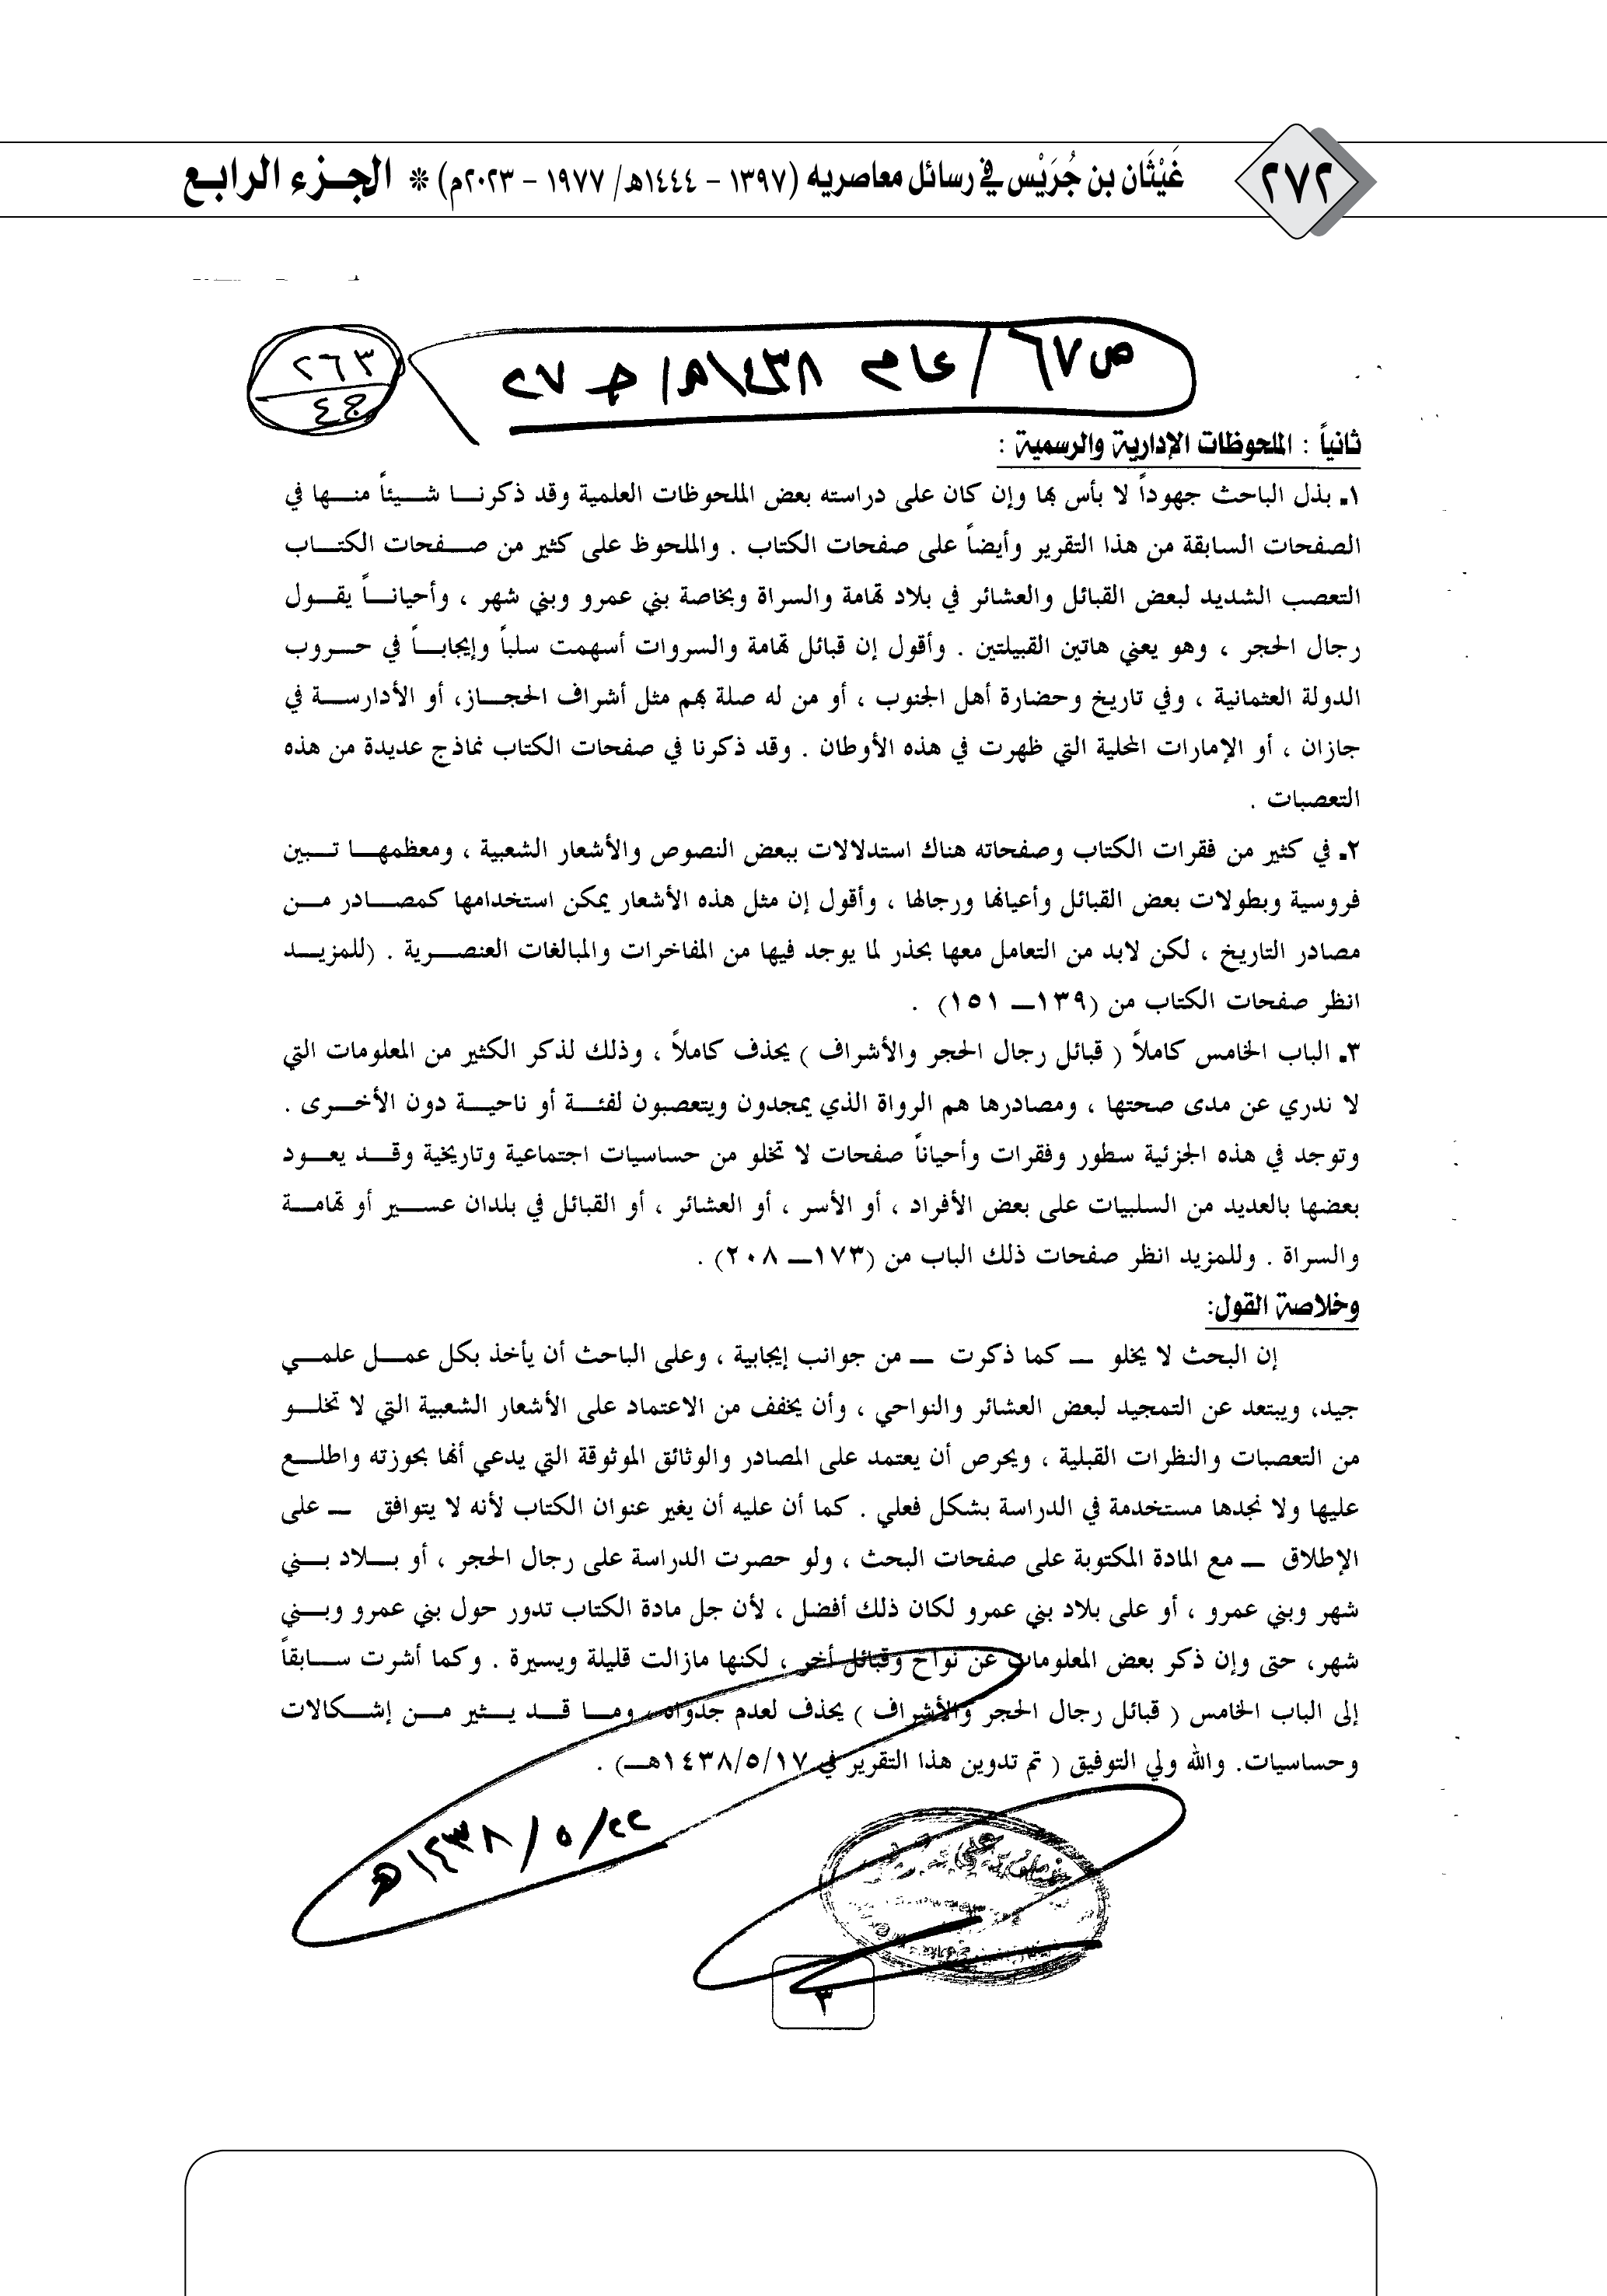 ٢٧٢
غَيْثَان بن جُرَيْس في رسائل معاصريه (١٣٩٧ - ١٤٤٤هـ/ ١٩٧٧ - ٢٠٢٣م) * الجـزء الرابـع
ص٦٧ / عام ١٤٣٨هـ/ جـ ٢٧
٢٦٣
ج٤
ثانياً : الملحوظات الإدارية والرسمية :
١ـ بذل الباحث جهوداً لا بأس بها وإن كان على دراسته بعض الملحوظات العلمية وقد ذكرنا شيئاً منها في
الصفحات السابقة من هذا التقرير وأيضاً على صفحات الكتاب . والملحوظ على كثير من صفحات الكتاب
التعصب الشديد لبعض القبائل والعشائر في بلاد تهامة والسراة وبخاصة بني عمرو وبني شهر ، وأحياناً يقول
رجال الحجر ، وهو يعني هاتين القبيلتين . وأقول إن قبائل تهامة والسروات أسهمت سلباً وإيجاباً في حروب
الدولة العثمانية ، وفي تاريخ وحضارة أهل الجنوب ، أو من له صلة بهم مثل أشراف الحجاز، أو الأدارسة في
جازان ، أو الإمارات المحلية التي ظهرت في هذه الأوطان . وقد ذكرنا في صفحات الكتاب نماذج عديدة من هذه
التعصبات .
٢ـ في كثير من فقرات الكتاب وصفحاته هناك استدلالات ببعض النصوص والأشعار الشعبية ، ومعظمها تبين
فروسية وبطولات بعض القبائل وأعيانها ورجالها ، وأقول إن مثل هذه الأشعار يمكن استخدامها كمصادر من
مصادر التاريخ ، لكن لابد من التعامل معها بحذر لما يوجد فيها من المفاخرات والمبالغات العنصرية . (للمزيد
انظر صفحات الكتاب من (١٣٩ــ ١٥١) .
٣ـ الباب الخامس كاملاً ( قبائل رجال الحجر والأشراف ) يحذف كاملاً ، وذلك لذكر الكثير من المعلومات التي
لا ندري عن مدى صحتها ، ومصادرها هم الرواة الذي يمجدون ويتعصبون لفئة أو ناحية دون الأخرى .
وتوجد في هذه الجزئية سطور وفقرات وأحياناً صفحات لا تخلو من حساسيات اجتماعية وتاريخية وقد يعود
بعضها بالعديد من السلبيات على بعض الأفراد ، أو الأسر ، أو العشائر ، أو القبائل في بلدان عسير أو تهامة
والسراة . وللمزيد انظر صفحات ذلك الباب من (١٧٣ــ ٢٠٨) .
وخلاصة القول:
إن البحث لا يخلو ــ كما ذكرت ــ من جوانب إيجابية ، وعلى الباحث أن يأخذ بكل عمل علمي
جيد، ويبتعد عن التمجيد لبعض العشائر والنواحي ، وأن يخفف من الاعتماد على الأشعار الشعبية التي لا تخلو
من التعصبات والنظرات القبلية ، ويحرص أن يعتمد على المصادر والوثائق الموثوقة التي يدعي أنها بحوزته واطلع
عليها ولا نجدها مستخدمة في الدراسة بشكل فعلي . كما أن عليه أن يغير عنوان الكتاب لأنه لا يتوافق ــ على
الإطلاق ــ مع المادة المكتوبة على صفحات البحث ، ولو حصرت الدراسة على رجال الحجر ، أو بلاد بني
شهر وبني عمرو ، أو على بلاد بني عمرو لكان ذلك أفضل ، لأن جل مادة الكتاب تدور حول بني عمرو وبني
شهر، حتى وإن ذكر بعض المعلومات عن نواح وقبائل أخر ، لكنها مازالت قليلة ويسيرة . وكما أشرت سابقاً
إلى الباب الخامس ( قبائل رجال الحجر والأشراف ) يحذف لعدم جدواه ، وما قد يثير من إشكالات
وحساسيات. والله ولي التوفيق ( تم تدوين هذا التقرير في ١٤٣٨/٥/١٧هــ) .
٢٢/ ٥ / ١٤٣٨هـ
٣